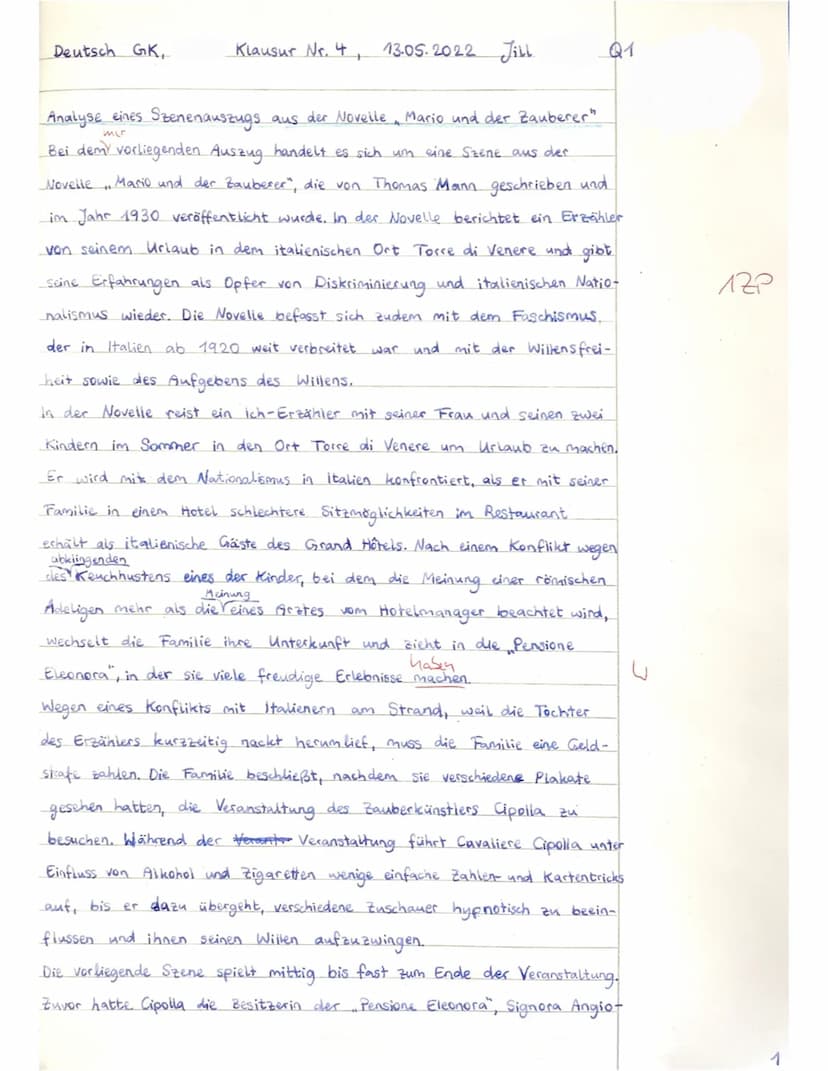 Deutsch GK, Klausur Nr. 4, 13.05.2022 Jill Q1
Analyse eines Szenenauszugs aus der Novelle „Mario und der Zauberer"
mir
Bei dem vorliegenden Auszug handelt es sich um eine Szene aus der
Novelle „Mario und der Zauberer", die von Thomas Mann geschrieben und
im Jahr 1930 veröffentlicht wurde. In der Novelle berichtet ein Erzähler
von seinem Urlaub in dem italienischen Ort Torre di Venere und gibt
seine Erfahrungen als Opfer von Diskriminierung und italienischen Natio-
1ZP
nalismus wieder. Die Novelle befasst sich zudem mit dem Faschismus,
der in Italien ab 1920 weit verbreitet war und mit der Willensfrei-
heit sowie des Aufgebens des Willens.
In der Novelle reist ein Ich-Erzähler mit seiner Frau und seinen zwei
Kindern im Sommer in den Ort Torre di Venere um Urlaub zu machen.
Er wird mit dem Nationalismus in Italien konfrontiert, als er mit seiner
Familie in einem Hotel schlechtere Sitzmöglichkeiten im Restaurant
erhält als italienische Gäste des Grand Hôtels. Nach einem Konflikt wegen
abklingenden
des Keuchhustens eines der Kinder, bei dem die Meinung einer römischen
Meinung
Adeligen mehr als die eines Arztes vom Hotelmanager beachtet wird,
wechselt die Familie ihre Unterkunft und zieht in die „Pensione
haben
Eleonora", in der sie viele freudige Erlebnisse machen.
Wegen eines Konflikts mit Italienern am Strand, weil die Tochter
des Erzählers kurzzeitig nackt herumlief, muss die Familie eine Geld-
strafe zahlen. Die Familie beschließt, nachdem sie verschiedene Plakate
gesehen hatten, die Veranstaltung des Zauberkünstlers Cipolla zu
besuchen. Während der Veranstaltung führt Cavaliere Cipolla unter
Einfluss von Alkohol und Zigaretten wenige einfache Zahlen- und Kartentricks
auf, bis er dazu übergeht, verschiedene Zuschauer hypnotisch zu beein-
flussen und ihnen seinen Willen aufzuzwingen.
Die vorliegende Szene spielt mittig bis fast zum Ende der Veranstaltung.
Zuvor hatte Cipolla die Besitzerin der „Pensione Eleonora", Signora Angio-
1